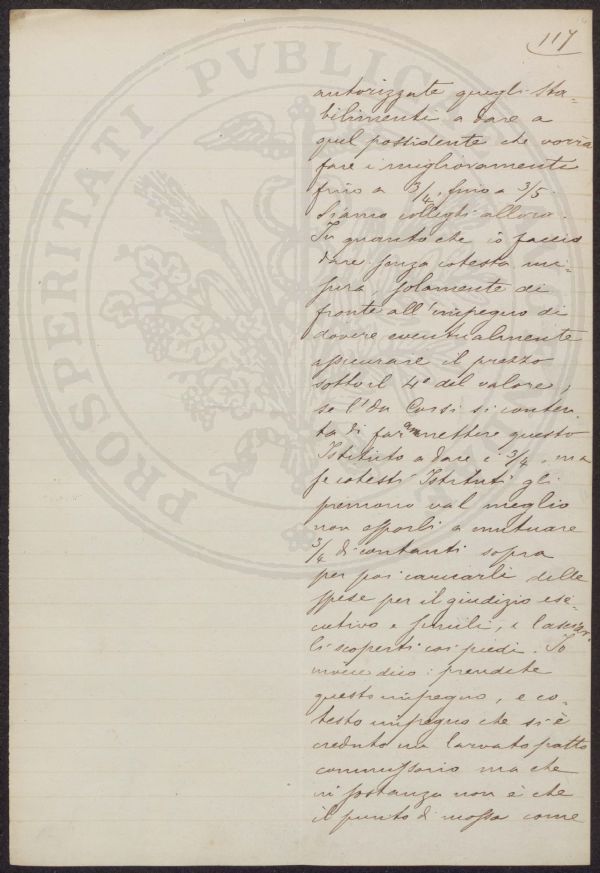 117
PROSPERITATI PVBLICAE
autorizzate quegli sta-
bilimenti a dare a
quel possidente che vorrà
fare i miglioramenti
fino a 3/4, fino a 3/5.
Siamo colleghi allora.
In quanto che io faccio
dare senza cotesta mi-
sura, solamente di
fronte all'impegno di
dovere eventualmente
assicurare il prezzo
sotto il 4° del valore,
se l'On Cossi si conten-
ta di far ammettere questo
Istituto a dare i 3/4, ma
se cotesti Istituti gli
premono val meglio
non esporli a mutuare
3/4 di contanti sopra
per poi caricarli delle
spese per il giudizio ese-
cutivo e simili, e lasciar
li scoperti coi piedi. Io
invece dico: prendete
quest'impegno, e co-
testo impegno che si è
creduto un larvato patto
commissorio ma che
in sostanza non è che
il punto di mossa come